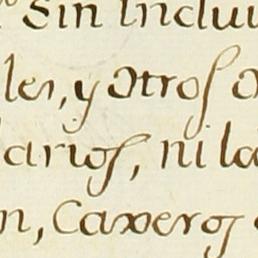 Sin Inclui
les, y otros o
darios, ni la
n, Caxeros